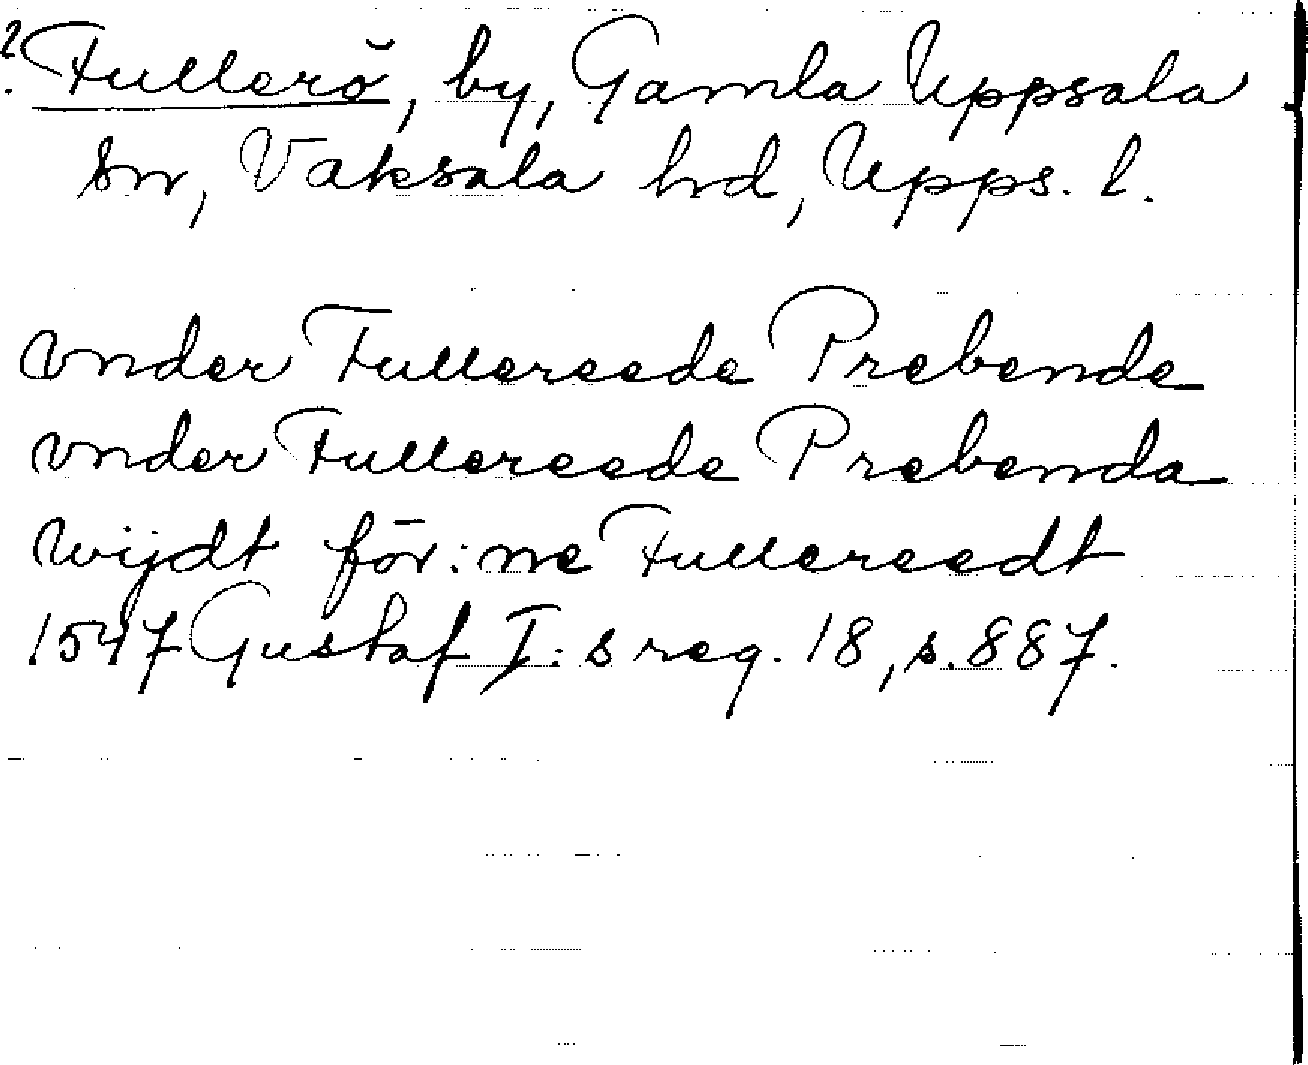 ? Fullerö, by, Gamla Uppsala
sn, Vaksala hd, Upps. l.
vnder Fullereede Prebende
vnder Fullereede Prebenda
widt för:ne Fullereedt
1547 Gustaf I:s reg. 18, s. 887.